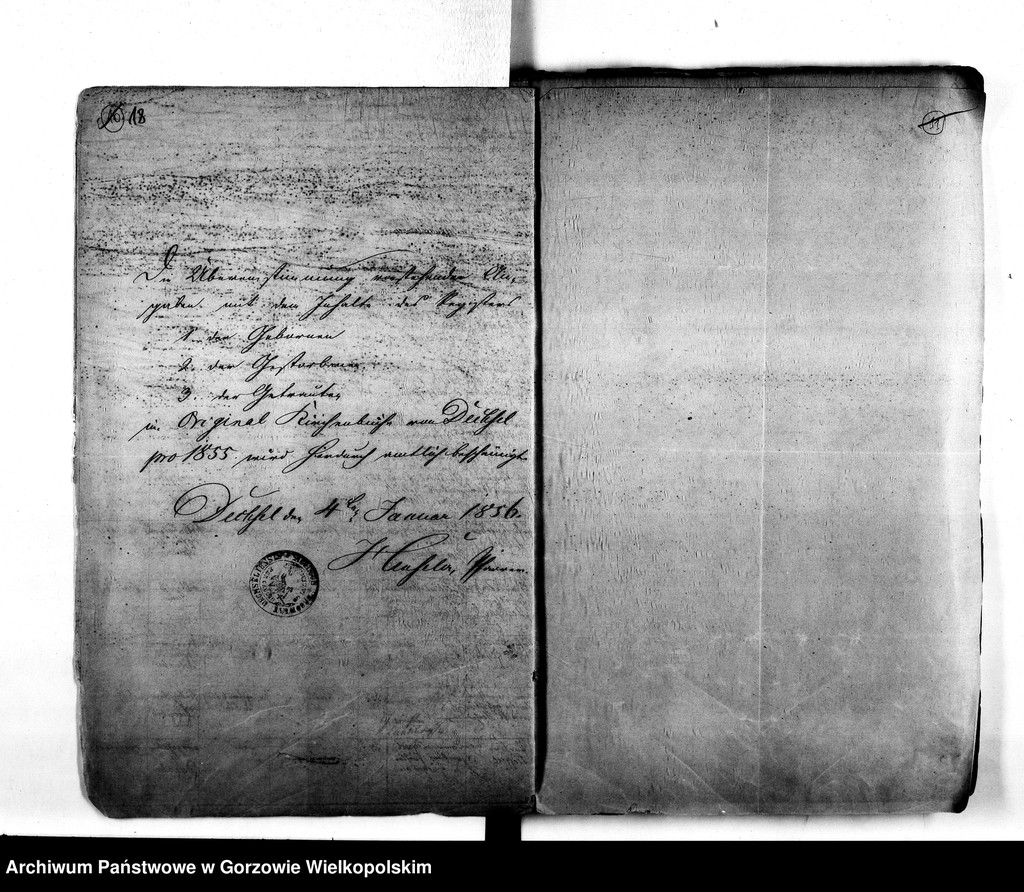 16 18
Die Übereinstimmung vorstehender An-
gaben mit dem Inhalte des Registers
1. der Gebornen
2. der Gestorbenen
3. der Getrauten
im Original Kirchenbuche von Dechsel
pro 1855 wird hierdurch amtlich bescheinigt.
Dechsel den 4ten Januar 1856.
Pfarrer
Archiwum Państwowe w Gorzowie Wielkopolskim